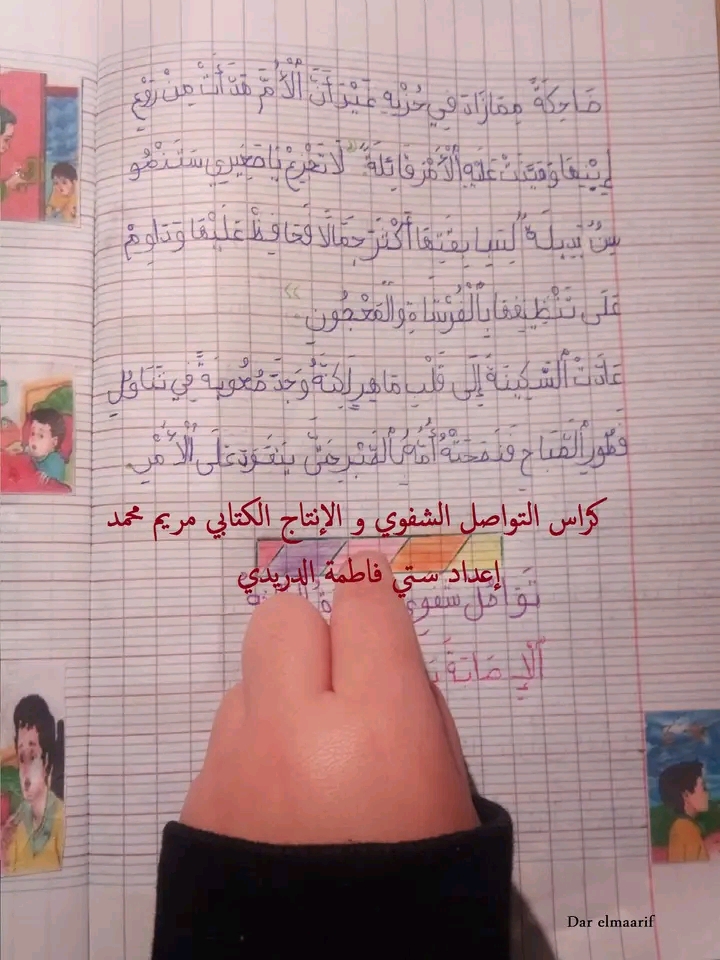 ضَاحِكَةً مِمَّا زَادَ فِي حُزْنِهِ غَيْرَ أَنَّ الْأُمَّ هَدَّأَتْ مِنْ رَوْعِ
اِبْنِهَا وَهَوَّنَتْ عَلَيْهِ الْأَمْرَ قَائِلَةً: " لَا تَجْزَعْ يَا صَغِيرِي سَتَنْمُو
سِنٌّ بَدِيلَةٌ لِسَابِقَتِهَا أَكْثَرَ جَمَالًا فَحَافِظْ عَلَيْهَا وَدَاوِمْ
عَلَى تَنْظِيفِهَا بِالْفُرْشَاةِ وَالْمَعْجُونِ "
عَادَتْ السَّكِينَةَ إِلَى قَلْبِ مَاهِرٍ لَكِنَّهُ وَجَدَ صُعُوبَةً فِي تَنَاوُلِ
فَطُورِ الصَّبَاحِ فَنَصَحَتْهُ أُمُّهُ بِالصَّبْرِ حَتَّى يَتَعَوَّدَ عَلَى الْأَمْرِ.
كرّاس التواصل الشفوي و الإنتاج الكتابي مريم محمد
إعداد ستي فاطمة الدريدي
تَوَاصُل شَفَوِي
الْإِصَابَةُ
Dar elmaarif